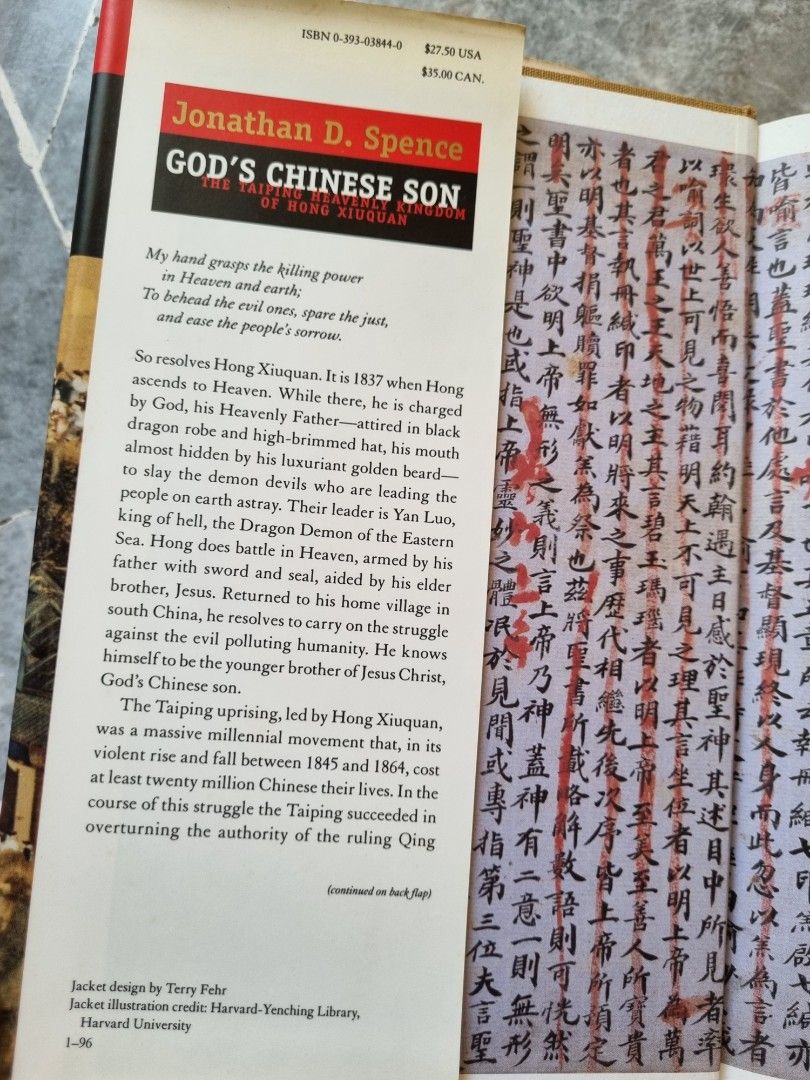 ISBN 0-393-03844-0 $27.50 USA
$35.00 CAN.
Jonathan D. Spence
GOD'S CHINESE SON
THE TAIPING HEAVENLY KINGDOM
OF HONG XIUQUAN
My hand grasps the killing power
in Heaven and earth;
To behead the evil ones, spare the just,
and ease the people's sorrow.
So resolves Hong Xiuquan. It is 1837 when Hong
ascends to Heaven. While there, he is charged
by God, his Heavenly Father—attired in black
dragon robe and high-brimmed hat, his mouth
almost hidden by his luxuriant golden beard—
to slay the demon devils who are leading the
people on earth astray. Their leader is Yan Luo,
king of hell, the Dragon Demon of the Eastern
Sea. Hong does battle in Heaven, armed by his
father with sword and seal, aided by his elder
brother, Jesus. Returned to his home village in
south China, he resolves to carry on the struggle
against the evil polluting humanity. He knows
himself to be the younger brother of Jesus Christ,
God's Chinese son.
The Taiping uprising, led by Hong Xiuquan,
was a massive millennial movement that, in its
violent rise and fall between 1845 and 1864, cost
at least twenty million Chinese their lives. In the
course of this struggle the Taiping succeeded in
overturning the authority of the ruling Qing
(continued on back flap)
Jacket design by Terry Fehr
Jacket illustration credit: Harvard-Yenching Library,
Harvard University
1–96
皆喻言也蓋聖書於他處言及基督顯現終以人身而此忽以羔為言者
環生欲人善悟而喜閱耳約翰遇主日感於聖神其述目中所見者率
以喻詞以世上可見之物藉明天上不可見之理其言坐位者以明上帝為萬
君之君萬王之王天地之主其言碧玉瑪瑙者以明上帝至美至善人所寶貴
者也其言執冊緘印者以明將來之事歷代相繼先後次序皆上帝所預定
亦以明基督捐軀贖罪如獻羔為祭也茲將聖書所載略解數語則可恍然
明矣聖書中欲明上帝無形之義則言上帝乃神蓋神有二意一則無形
之謂一則聖神是也或指上帝靈妙之體泯於見聞或專指第三位夫言聖